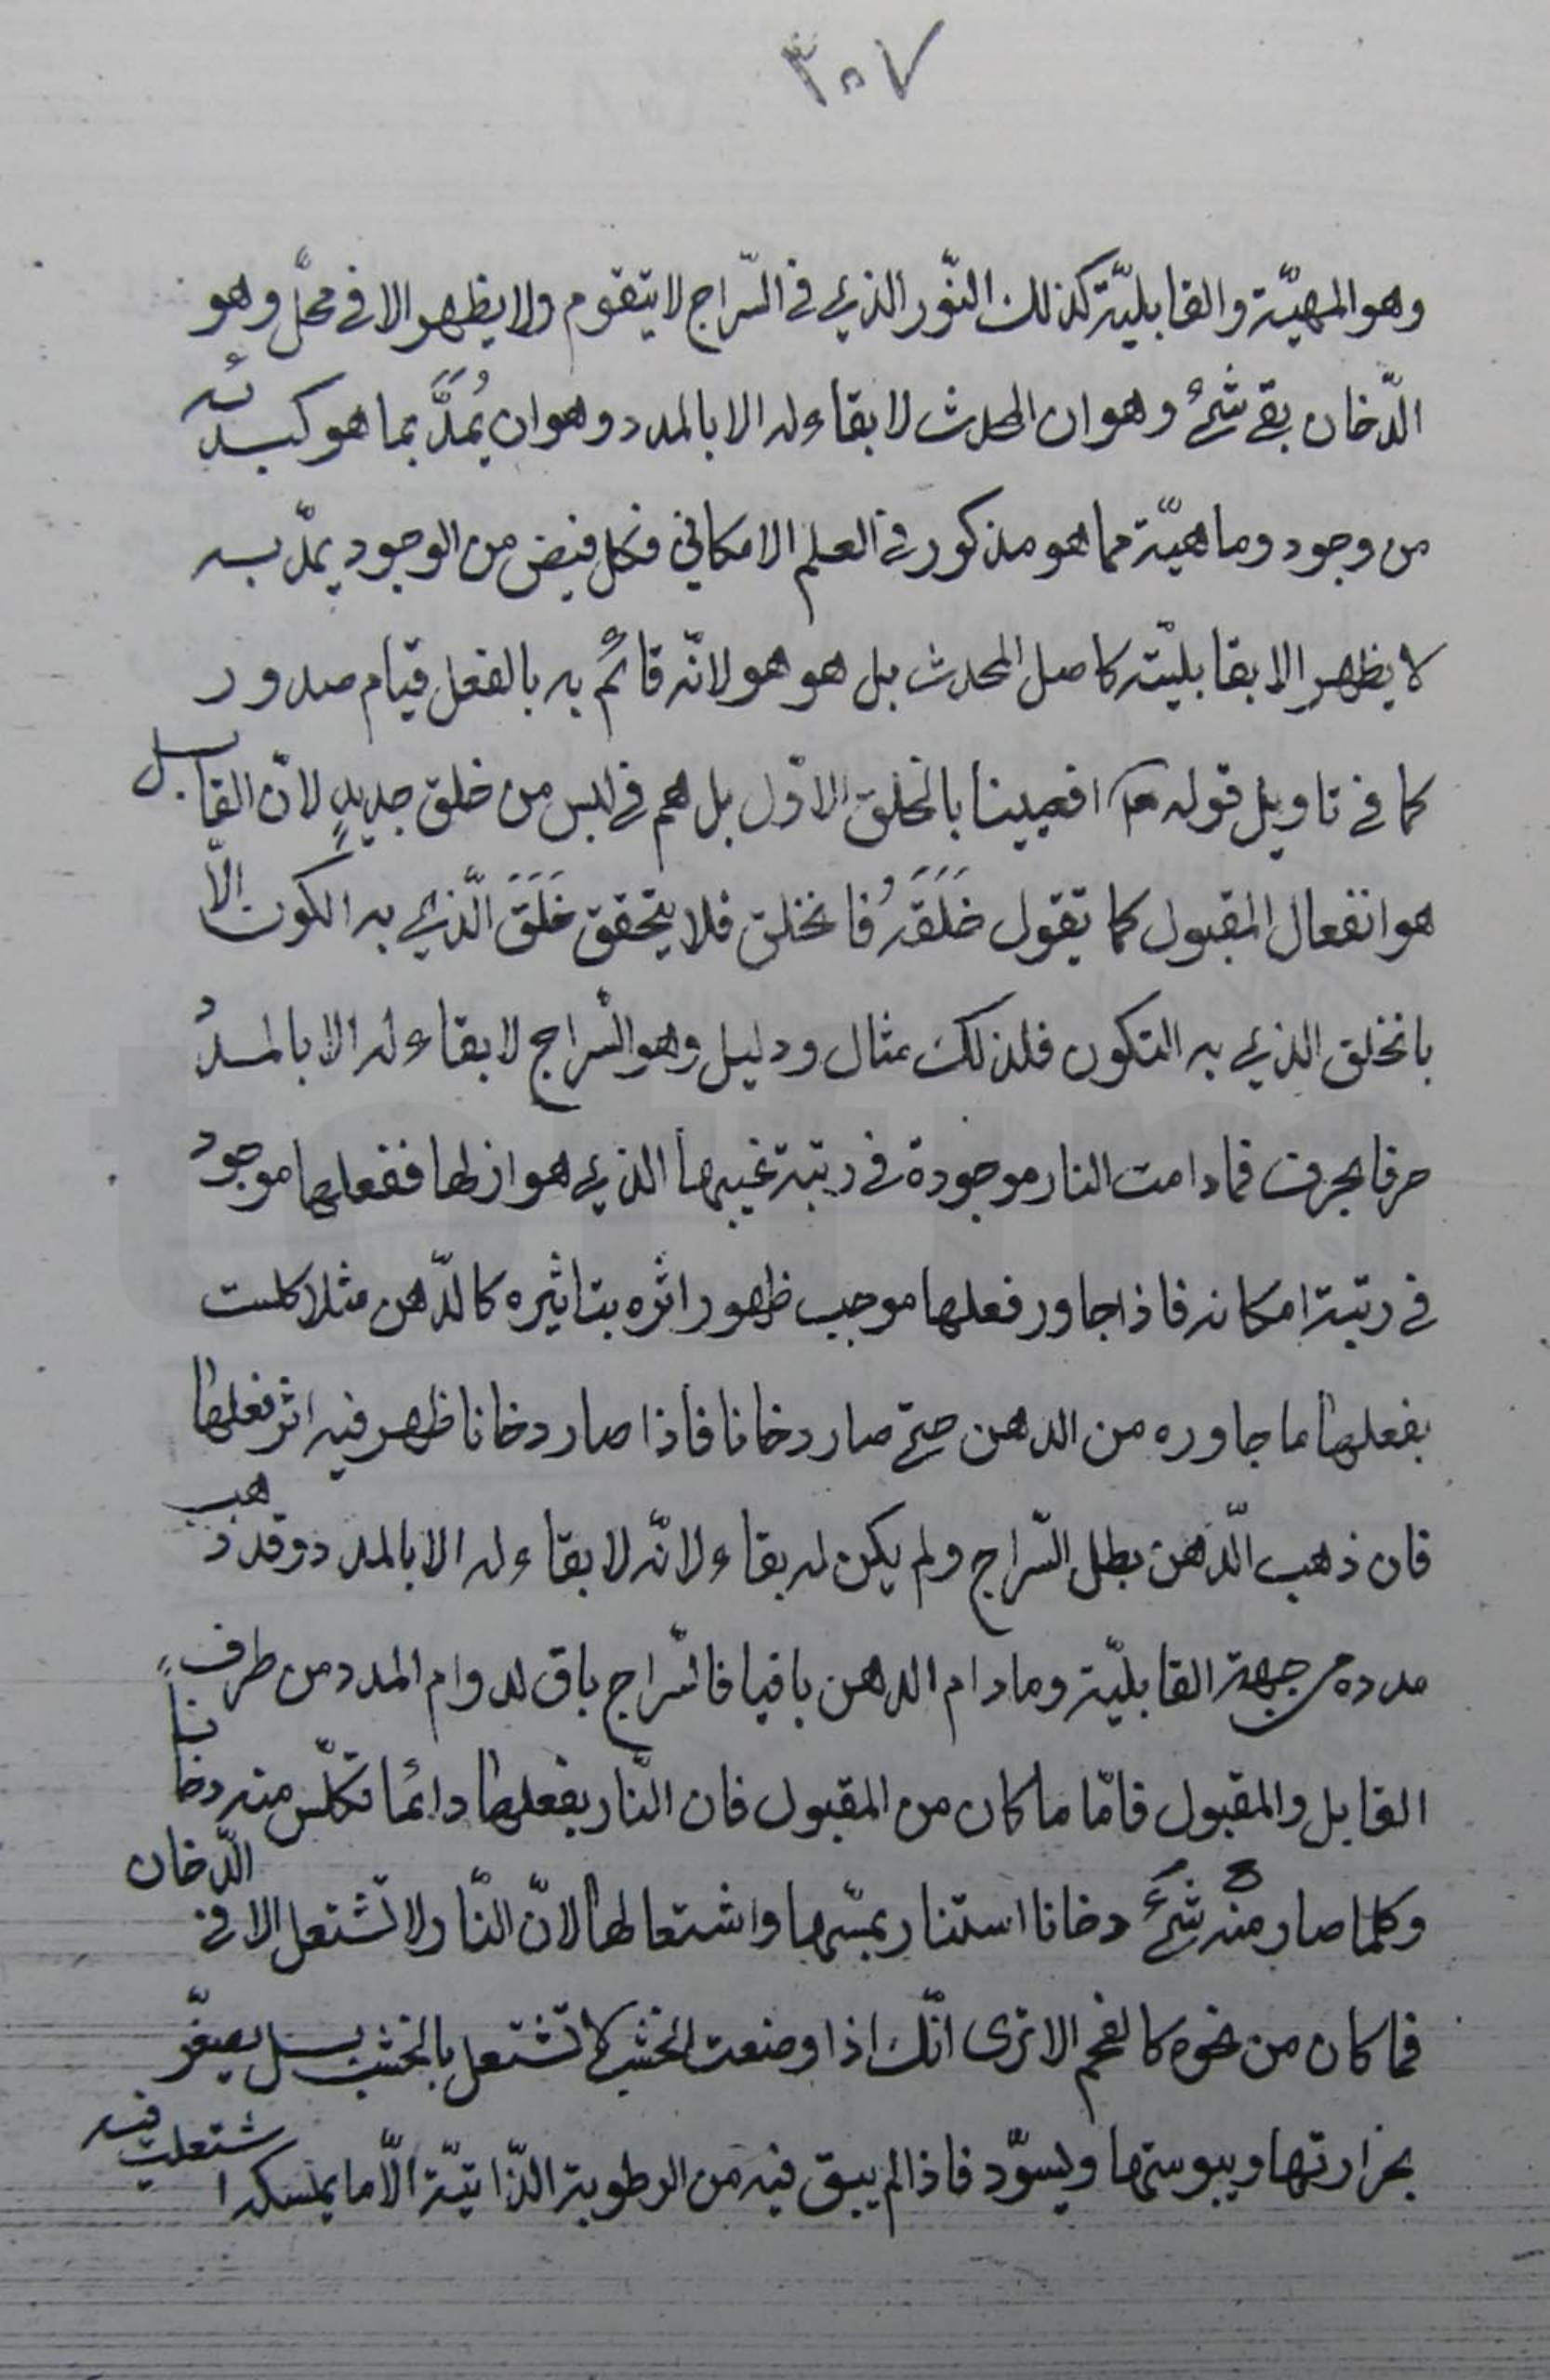 ٣٠٧
وهو المهيّة والقابليّة كذلك النّور الذي في السّراج لا يتقوم ولا يظهر الا في محلّ وهو
الّدخان بقي شئ وهو ان المحدث لا بقاء له الا بالمدد وهو ان يُمَدَّ بما هو كبدئه
من وجود وماهيّة مما هو مذكور في العلم الامكاني فكل فيض من الوجود يمدّ به
لا يظهر الا بقابليّته كاصل المحدث بل هو هو لانّه قائم به بالفعل قيام صدور
كما في تاويل قوله تعالى افعيينا بالخلق الاوّل بل هم في لبس من خلق جديدٍ لانّ القابل
هو انفعال المقبول كما تقول خَلَقَهُ فانخلق فلا يتحقق خَلَقَ الّذي به الكون الّا
بانخلق الذي به التكون فلذلك مثال ودليل وهو السّراج لا بقاء له الا بالمدد
حرفا بحرف فما دامت النار موجودة في رتبة غيبها الذي هو ازلها ففعلها موجود
في رتبة امكانه فاذا جاور فعلها موجب ظهور اثره بتاثيره كالدّهن مثلا كلست
بفعلها ما جاوره من الدهن حتّى صار دخانا فاذا صار دخانا ظهر فيه اثر فعلها
فان ذهب الّدهن بطل السّراج ولم يكن له بقاء لانّه لا بقاء له الا بالمدد وقد ذهب
مدده من جهة القابليّة وما دام الدهن باقيا فالسّراج باق لدوام المدد من طرف
القابل والمقبول فامّا ما كان من المقبول فان النّار بفعلها دائما تكلّس منه دخاناً
وكلما صار منه شئ دخانا استنار بمسّها واشتعالها لانّ النّار لا تشتعل الا في الّدخان
فما كان من نحوه كالفحم الا ترى انّك اذا وضعت الخشب لا تشتعل بالخشب بل يصفّر
بحرارتها ويبوستها ويسوّد فاذا لم يبق فيه من الرطوبة الذّاتيّة الّا ما يمسكه اشتعلت فيه